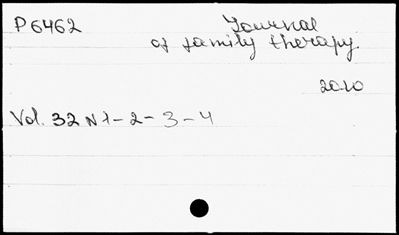 P6462
Journal
of family therapy.
2010
Vol. 32 N 1-2-3-4